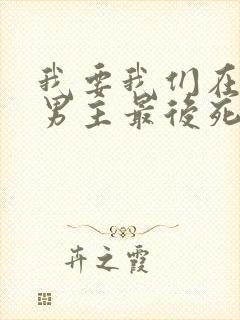 我要我们在
男主最后死
卉之霞